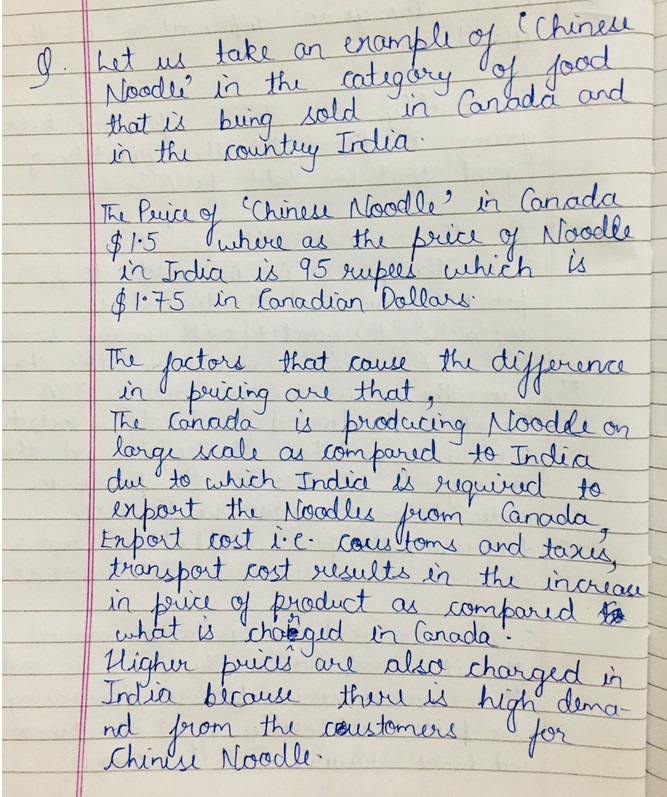 Q. Let us take an example of 'Chinese
Noodle' in the category of food
that is being sold in Canada and
in the country India.
The Price of 'Chinese Noodle' in Canada
$1.5 where as the price of Noodle
in India is 95 rupees which is
$1.75 in Canadian Dollars.
The factors that cause the difference
in pricing are that,
The Canada is producing Noodle on
large scale as compared to India
due to which India is required to
export the Noodles from Canada,
Export cost i.e. coustoms and taxes,
transport cost results in the increase
in price of product as compared to
what is charged in Canada.
Higher prices are also charged in
India because there is high dema-
nd from the customers for
Chinese Noodle.